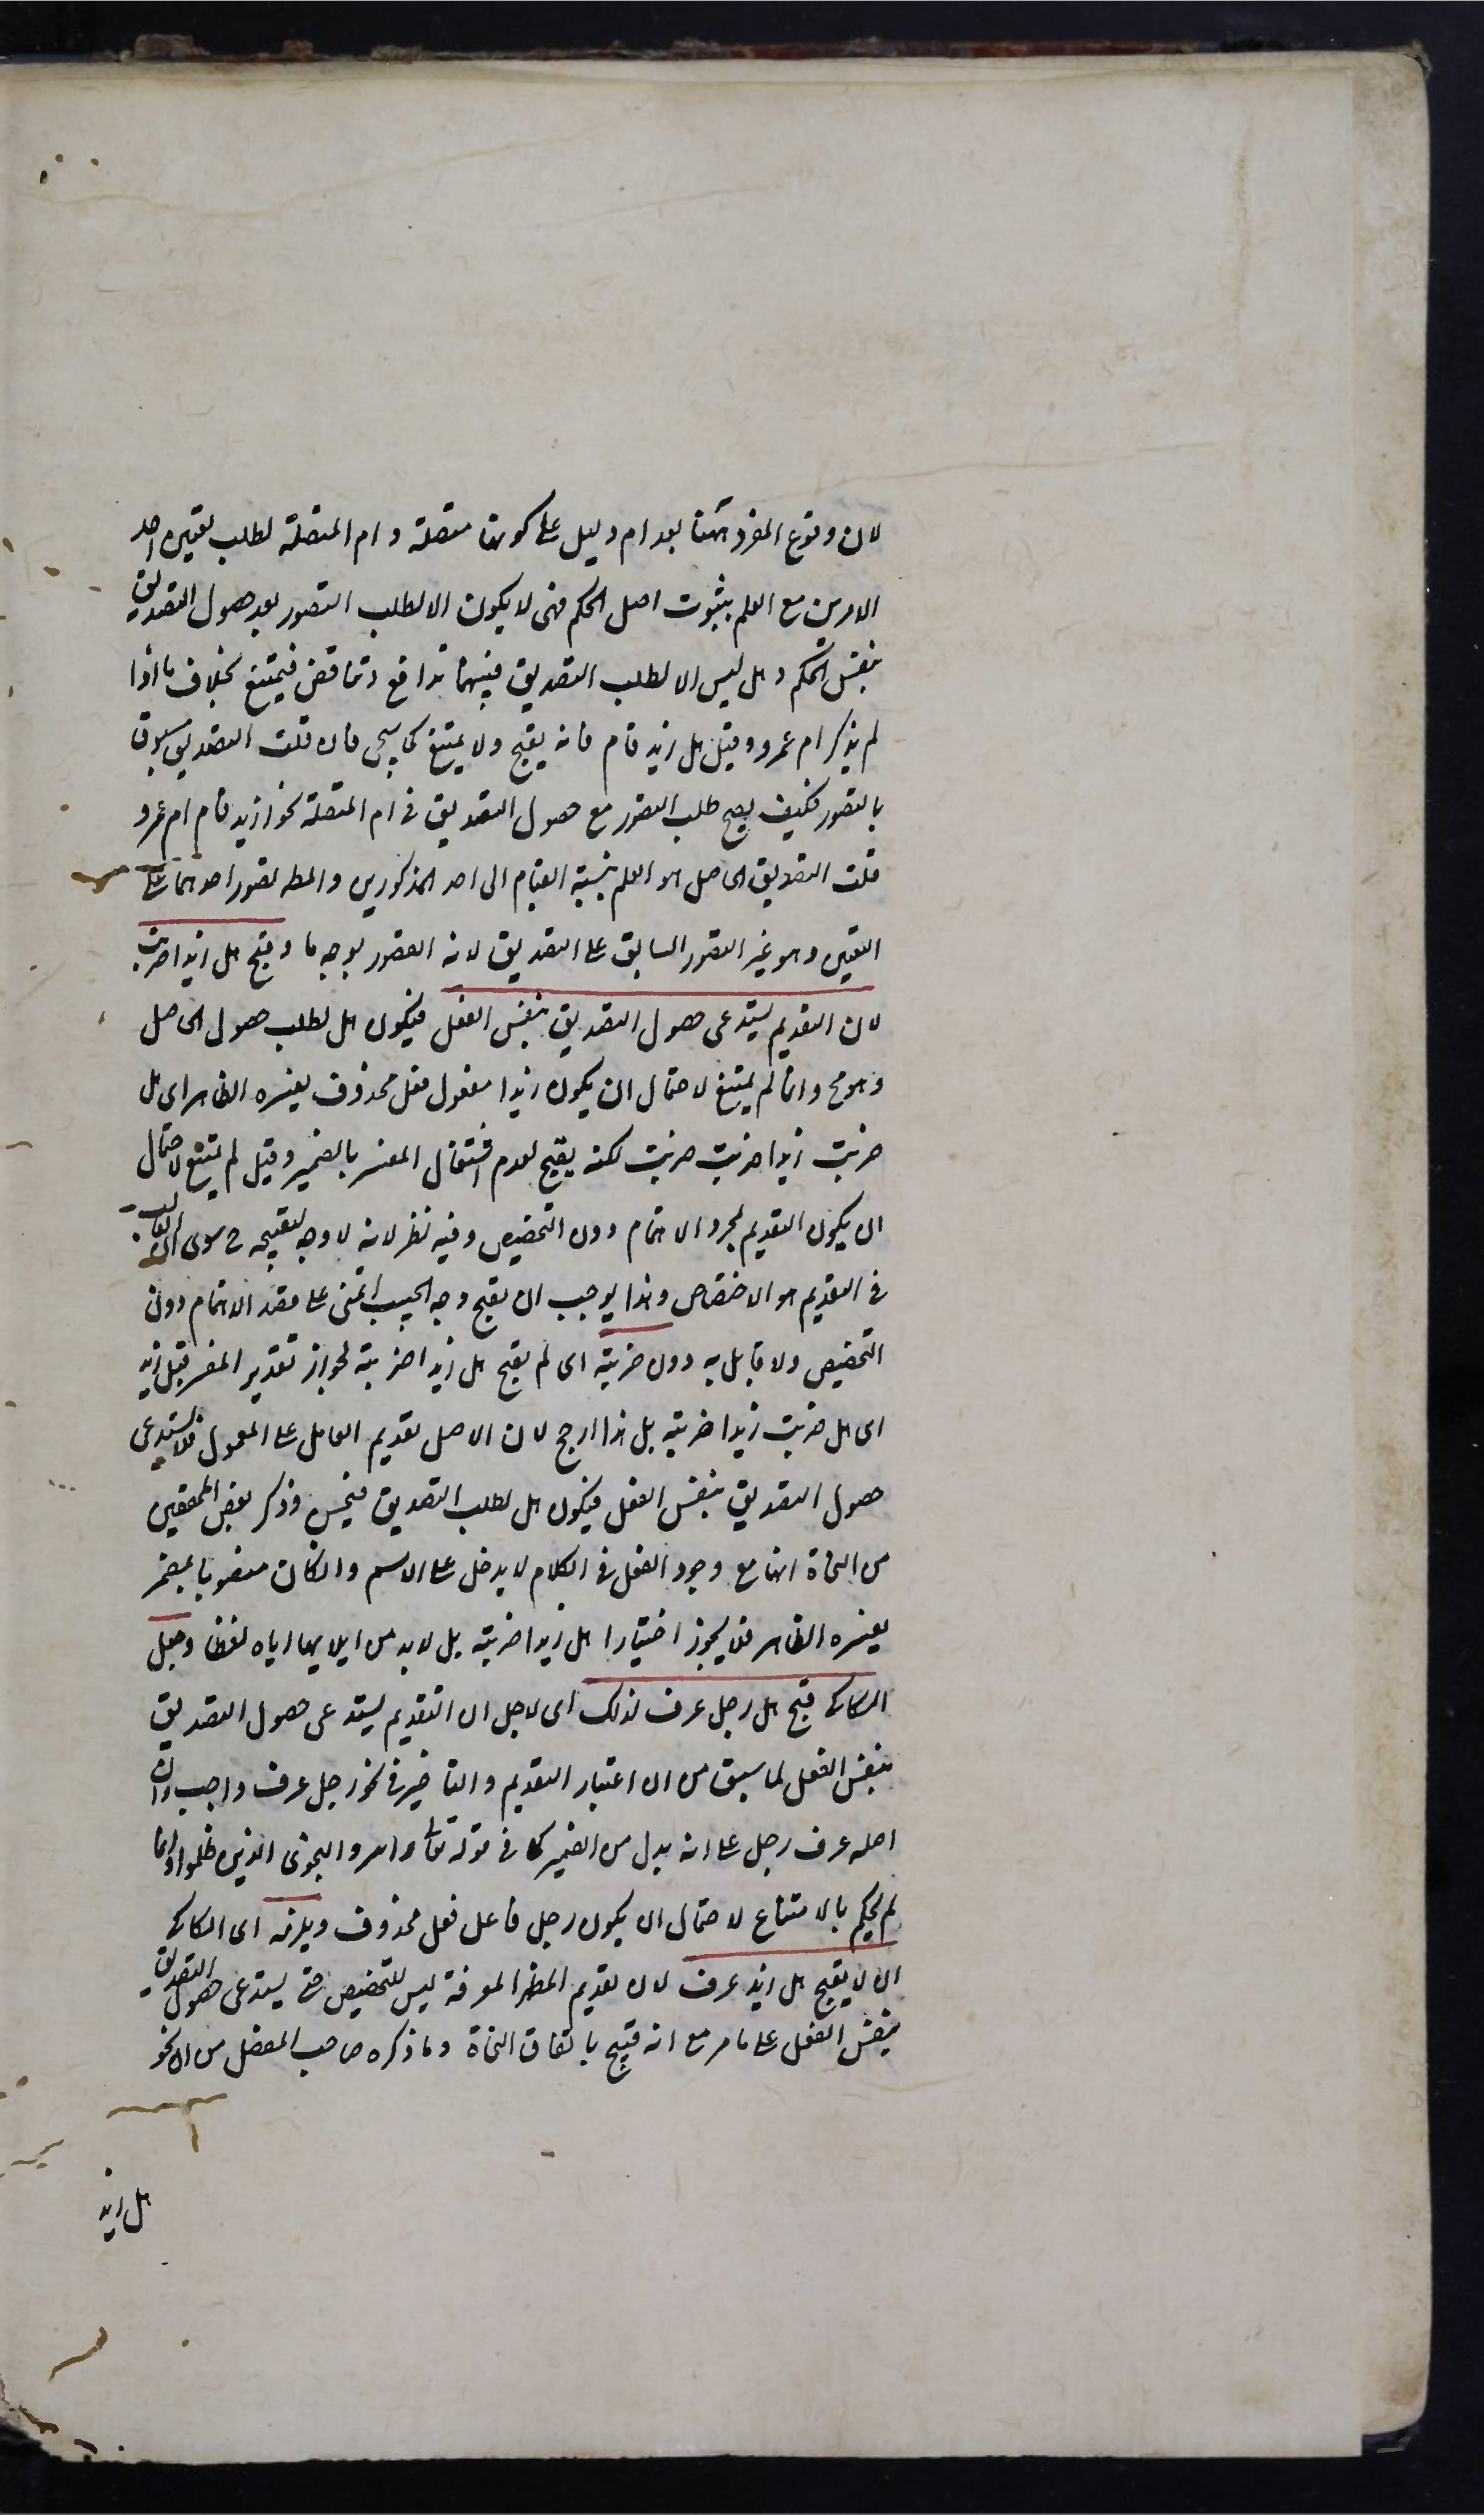 لان وقوع المفرد ههنا بعد ام دليل على كونها متصلة و ام المتصلة لطلب تعيين احد
الامرين مع العلم بثبوت اصل الحكم فهى لا يكون الا لطلب التصور بعد حصول التصديق
بنفس الحكم و هل ليس الا لطلب التصديق فبينهما تدافع و تناقض فيمتنع بخلاف ما اذا
لم يذكر ام عمرو و قيل هل زيد قام فانه يقبح ولا يمتنع كما سيجى فان قلت التصديق مسبوق
بالتصور فكيف يصح طلب التصور مع حصول التصديق فى ام المتصلة نحو ازيد قام ام عمرو
قلت التصديق الحاصل هو العلم بنسبة القيام الى احد المذكورين و المط تصور احدهما على
التعيين و هو غير التصور السابق على التصديق لانه التصور بوجه ما و قبح هل زيدا ضربت
لان التقديم يستدعى حصول التصديق بنفس الفعل فيكون هل لطلب حصول الحاصل
و هو مح و انما لم يمتنع لاحتمال ان يكون زيدا مفعول فعل محذوف يفسره الظاهر اى هل
ضربت زيدا ضربت ضربت لكنه يقبح لعدم اشتغال المفسر بالضمير و قيل لم يمتنع لاحتمال
ان يكون التقديم لمجرد الاهتمام دون التخصيص و فيه نظر لانه لا وجه لتقبيحه ح سوى ان الغالب
فى التقديم هو الاختصاص و هذا يوجب ان يقبح وجه الحبيب اتمنى على قصد الاهتمام دون
التخصيص ولا قايل به دون ضربته اى لم يقبح هل زيدا ضربته لجواز تقدير المفسر قبل زيد
اى هل ضربت زيدا ضربته بل هذا ارجح لان الاصل تقديم العامل على المعمول فلا يستدعى
حصول التصديق بنفس الفعل فيكون هل لطلب التصديق فيحسن و ذكر بعض المحققين
من النحاة انها مع وجود الفعل فى الكلام لا يدخل على الاسم و ان كان منصوبا بمضمر
يفسره الظاهر فلا يجوز اختيارا هل زيدا ضربته بل لابد من ايلايها اياه لفظا و جعل
السكاكى قبح هل رجل عرف لذلك اى لاجل ان التقديم يستدعى حصول التصديق
بنفس الفعل لما سبق من ان اعتبار التقديم و التاخير فى نحو رجل عرف واجب و ان
اصله عرف رجل على انه بدل من الضمير كما فى قوله تعالى و اسروا النجوى الذين ظلموا و انما
لم يحكم بالامتناع لاحتمال ان يكون رجل فاعل فعل محذوف و يلزمه اى السكاكى
ان لا يقبح هل زيد عرف لان تقديم المظهر المعرفة ليس للتخصيص حتى يستدعى حصول التصديق
بنفس الفعل على ما مر مع انه قبيح باتفاق النحاة و ما ذكره صاحب المفصل من ان نحو
هل زيد